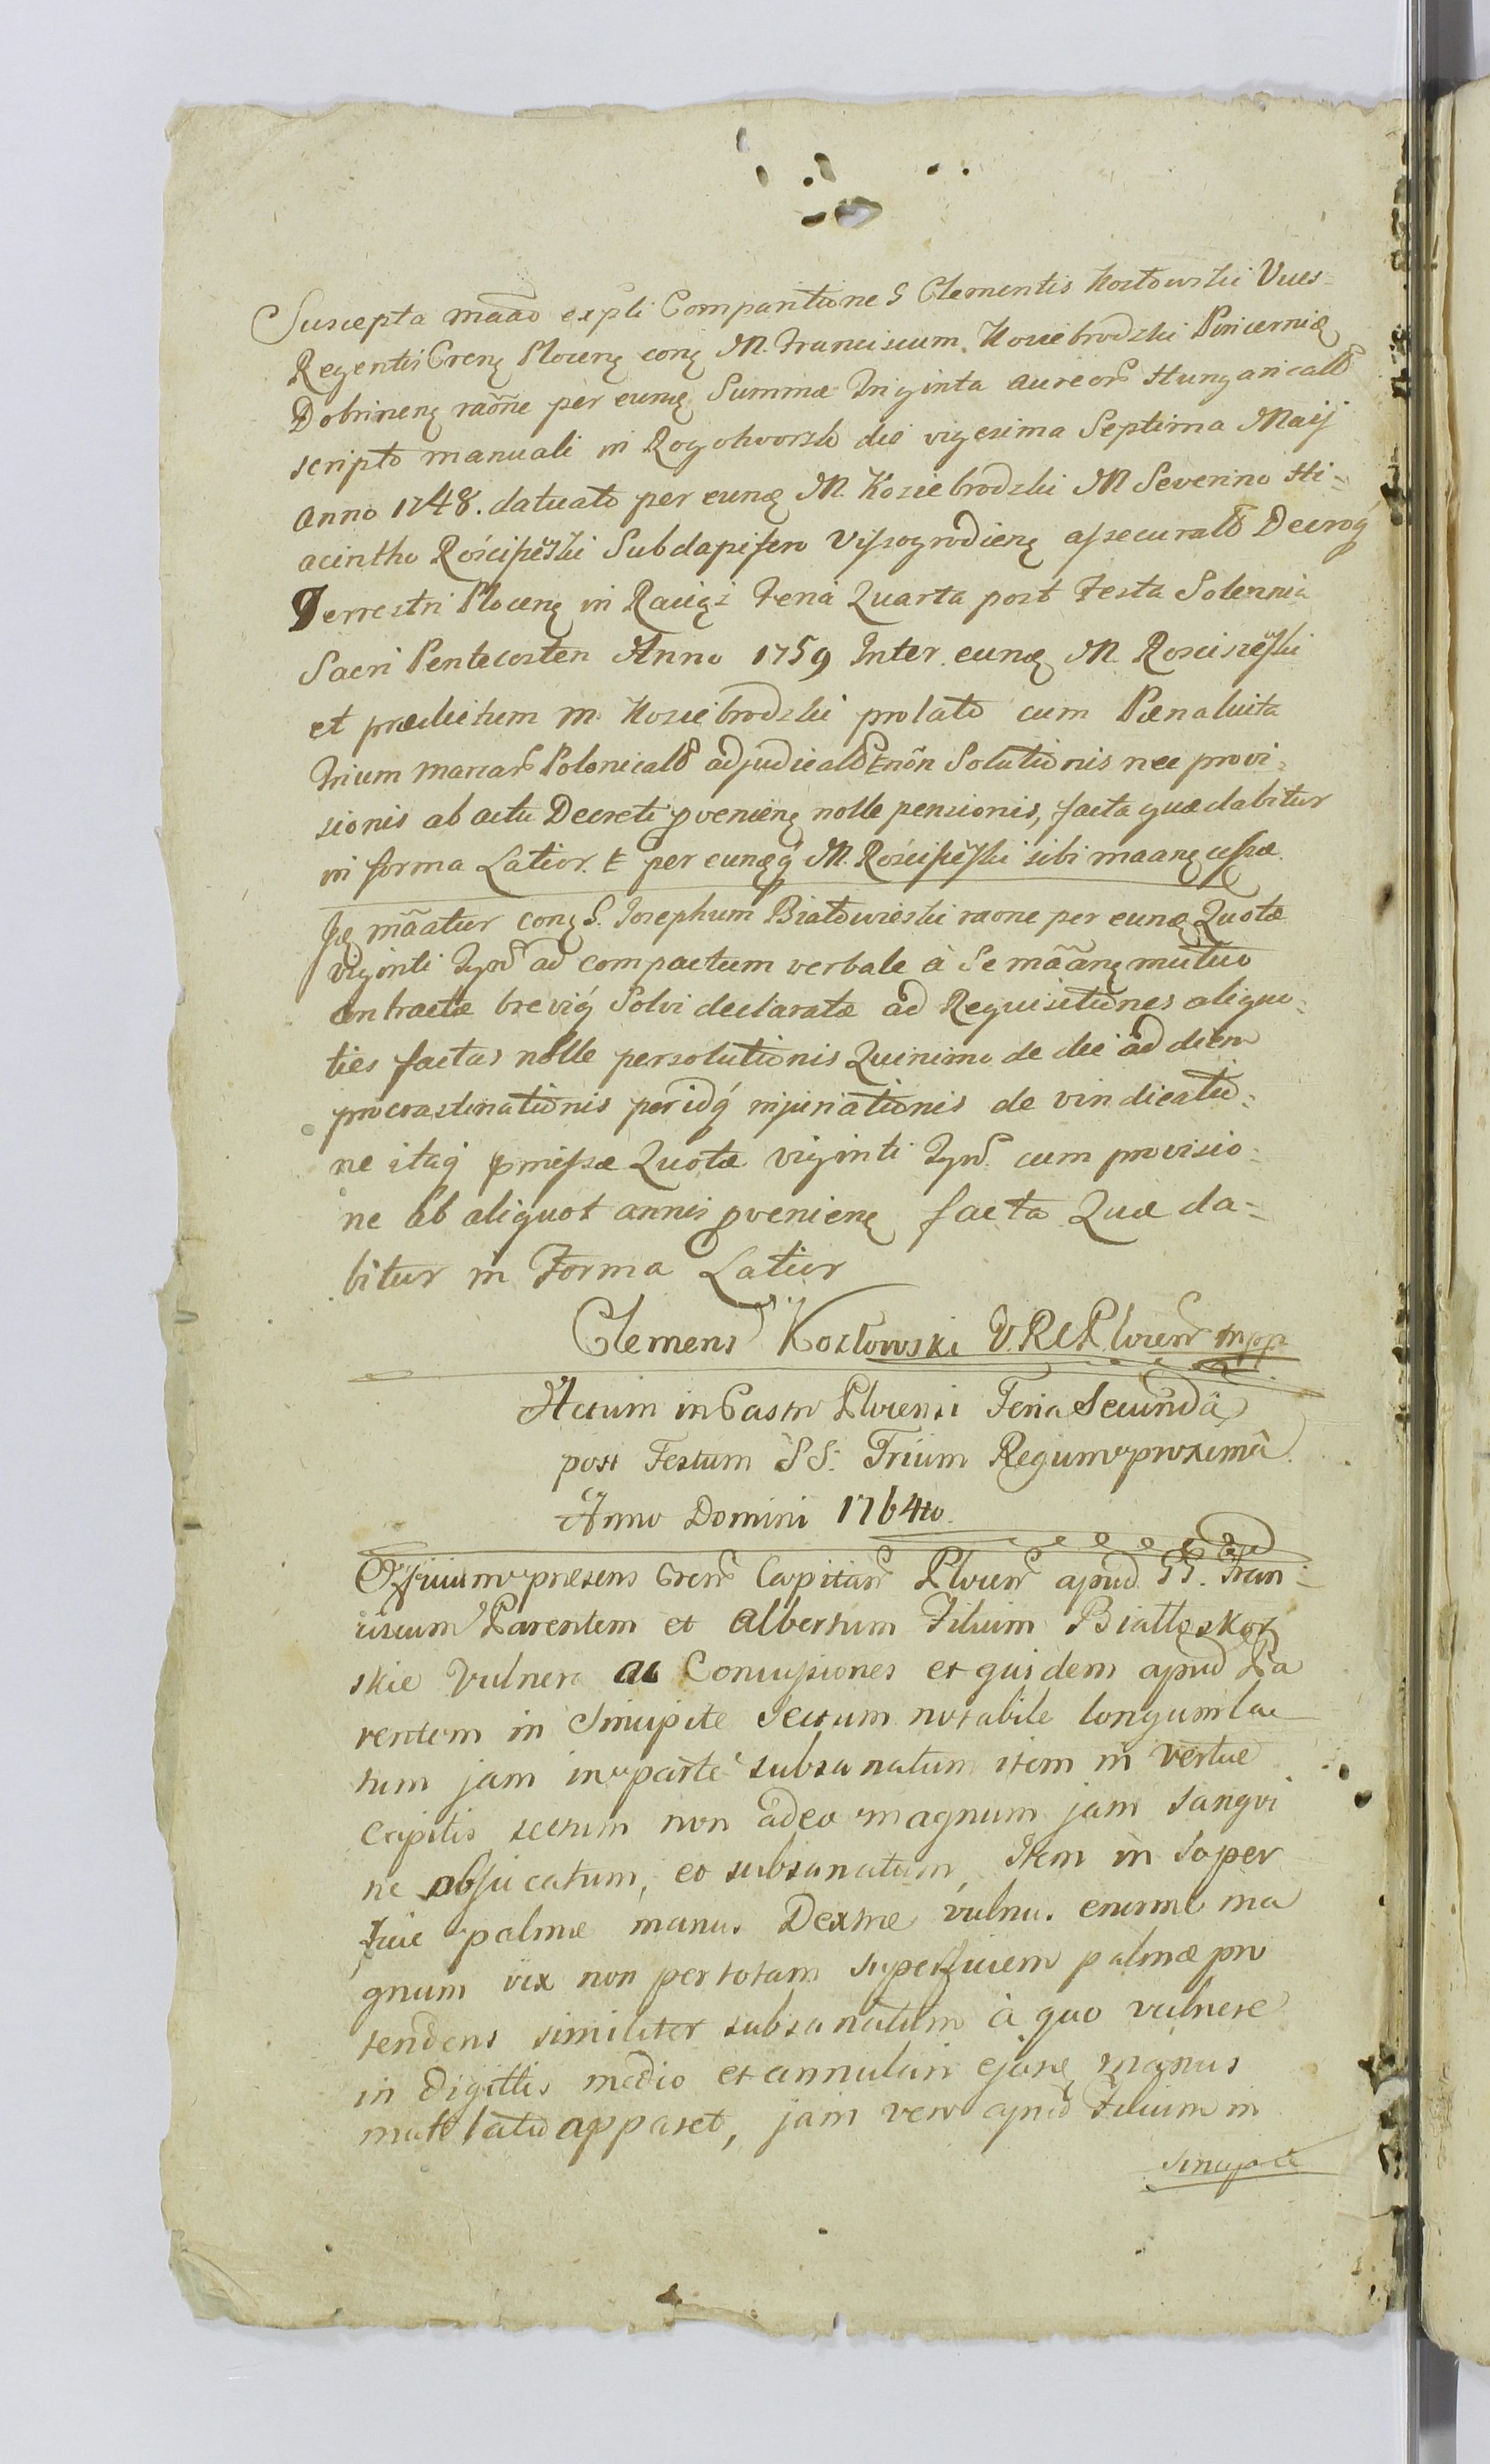 Suscepta maãõ expli Comparitione G Clementis Kozłowski Vices
Regentis Crens Plocens cong M. Franciscum Koziebrodzki Pincernię
Dobrinens raõne per eunde Summæ Triginta aureor Hungaricalium
scripto manuali in Rogotworsk die vigesima Septima Maij
Anno 1748. datuato per eundę M. Koziebrodzki M Severino Hi=
acintho Rościszewski Subdapifero Vissogrodiens assecurato Decroq
Terrestri Plocens in Raciąż Feria Quarta post Festa Solennia
Sacri Pentecosten Anno 1759 Inter eundę M. Rosciszewski
et prædictum M. Koziebrodzki prolato cum Pæna luita
Trium marcar Polonicaliũ adjudicato Et noñ Solutionis nec provi=
sionis ab actu Decreti pveniens nolle pensionis, facta quæ dabitur
in forma Latior. Et per eundęq M. Rościszewski sibi maans cessæ
Ję mãatur cong G. Josephum Białowieski raone per eundę Quotæ
viginti Tynf ad compactum verbale à Se mãans mutuo
contractæ breviq Solvi declaratæ ad Requisitiones aliquo=
ties factas nolle persolutionis Quinimo de die ad diem
procrastinationis per idq injuriationis de vindicatio=
ne itaq pmissæ Quotæ viginti Tynf. cum provisio=
ne ab aliquot annis pveniens facta Quæ da=
bitur in Forma Latior
Clemens Kozłowski V.R.C.Plocens mpp
Actum in Castro Plocensi Feria Secundâ
post Festum SS. Trium Regum proximâ
Anno Domini 1764to.
Officium præsens Crens Capitan Plocens apud GG. Fran=
ciscum Parentem et Albertum Filium Białłoskor
skie Vulnera ac Contusiones et quidem apud Pa
rentem in Sincipite sectum notabile longum la
tum jam in parte subsanatum item in vertice
Capitis sectum non adeo magnum jam sangvi
ne obsiccatum, et subsanatum, Item in Super
ficie palmæ manus Dextræ vulnus enorme ma
gnum vix non per totam superficiem palmæ pro
tendens similiter subsanatum à quo vulnere
in digittis medio et annulari ejusdę manus
mutilatio apparet, jam vero apud Filium in
Sincipite